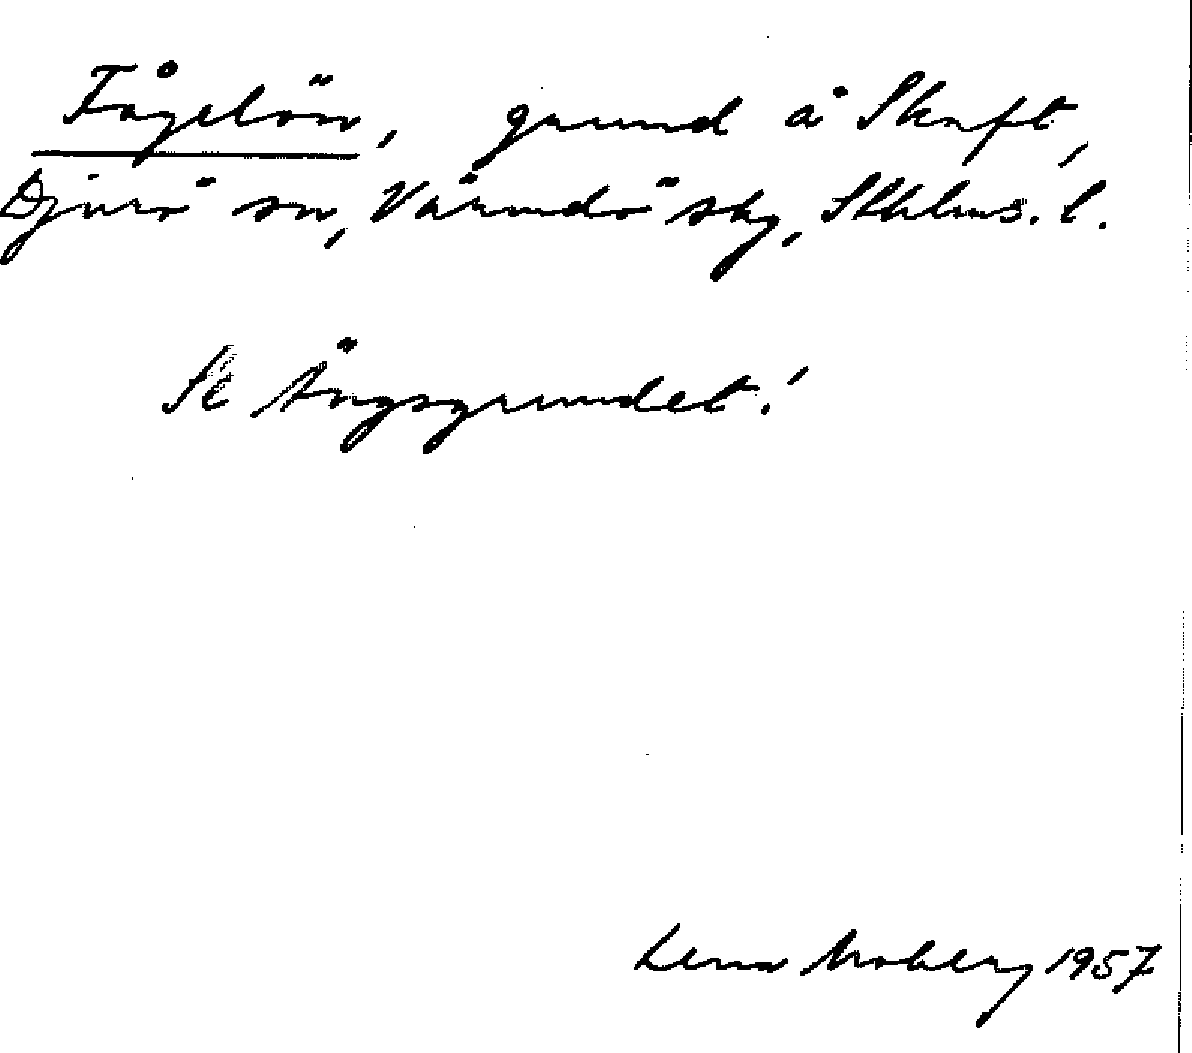 Fågelön, grund å Skaft,
Djurö sn, Värmdö skg, Sthlms. l.
Se Ängsgrundet!
Lena Moberg 1957